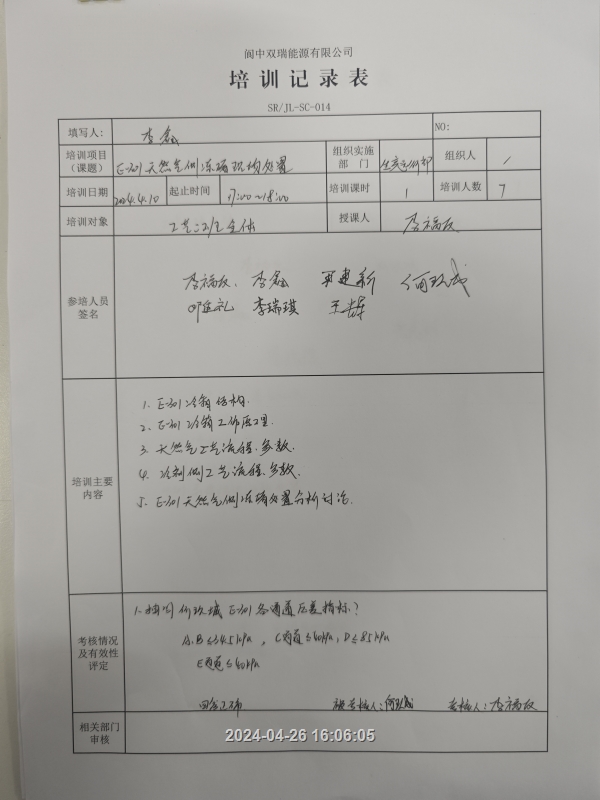 阆中双瑞能源有限公司
培训记录表
SR/JL-SC-014
填写人: 李鑫 NO:
培训项目（课题） E-301天然气侧冻堵现场处置 组织实施部门 生产运行部 组织人 /
培训日期 2024.4.10 起止时间 17:00~18:00 培训课时 1 培训人数 7
培训对象 工艺二班全体 授课人 李福友
参培人员签名
李福友、李鑫 建新 何玖成
礼 李瑞琪 王
培训主要内容
1. E-301冷箱结构.
2. E-301冷箱工作原理.
3. 天然气工艺流程、参数.
4. 冷剂侧工艺流程、参数.
5. E-301天然气侧冻堵处置分析讨论.
考核情况及有效性评定
1.抽问何玖城 E-301各通道压差指标?
A、B≤345kPa，C通道≤40kPa，D≤85kPa
E通道≤40kPa
回答正确 被考核人:何玖成 考核人:李福友
相关部门审核
2024-04-26 16:06:05